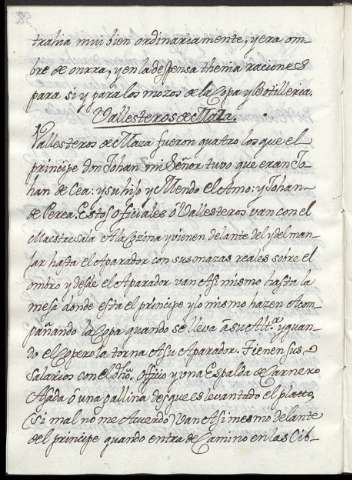 trahia mui bien ordinariamente, y era om-
bre de onrra, y en la despensa thenia raciones
para si y para los mozos de la Copa y Botilleria.
Vallesteros de Maza.
Vallesteros de Maza fueron quatro los que el
principe don Johan mi Señor tuvo que eran Jo-
han de Cea: y su hijo y Mendo el Amo: y Johan
de Perea. Estos oficiales ó Vallesteros van con el
Maestresala A la Cozina y vienen delante del y del man-
jar hasta el Aparador con sus mazas reales sobre el
ombro y desde el Aparador van Asi mismo hasta la
mesa donde esta el principe y lo mismo hazen acom-
pañando la Copa quando se lleva á su Alt.ª y quan-
do el Copero la torna A su Aparador. Tienen sus
Salarios con el dho. Officio y una Espalda de Carnero
Asada ó una gallina despues levantado el plato,
(si mal no me Acuerdo) Van Asi mesmo delante
del principe quando entra de Camino en las Cib-